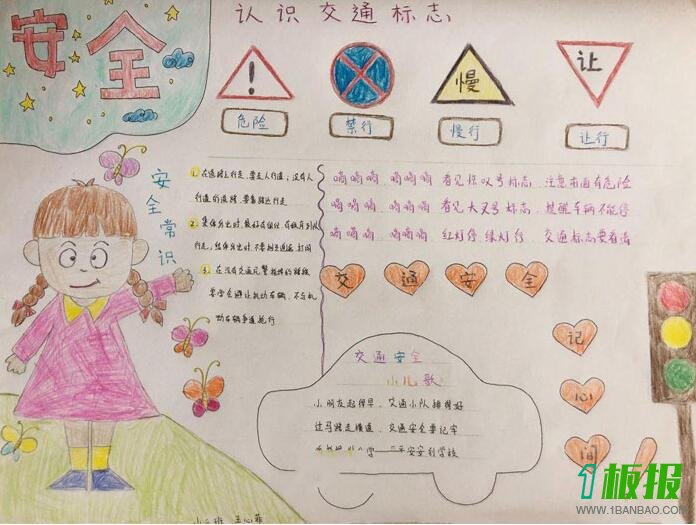 安全
认识交通标志
!
慢
让
危险
禁行
慢行
让行
安全常识
1、在道路上行走,要走人行道;没有人
行道的道路,要靠路边行走
2、集体外出时,最好有组织、有秩序列队
行走;结伴外出时,不要相互追逐、打闹
3、在没有交通民警指挥的路段
要学会避让机动车辆,不与机
动车辆争道抢行
嘀嘀嘀 嘀嘀嘀 看见惊叹号标志 注意前面有危险
嘀嘀嘀 嘀嘀嘀 看见大叉号标志 提醒车辆不能停
嘀嘀嘀 嘀嘀嘀 红灯停 绿灯行 交通标志要看清
交通安全
记
心
间
!
交通安全
小儿歌
小朋友起得早 交通小队排得好
过马路走横道 交通安全要记牢
平平安安到学校
小二班
1板报
WWW.1BANBAO.COM